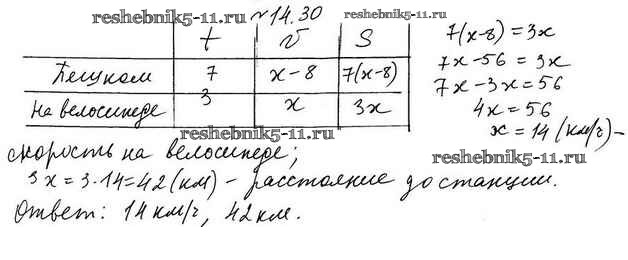 reshebnik5-11.ru
№14.30
reshebnik5-11.ru
t v S
Пешком 7 x-8 7(x-8)
На велосипеде 3 x 3x
reshebnik5-11.ru
7(x-8)=3x
7x-56=3x
7x-3x=56
4x=56
x=14(км/ч)-
reshebnik5-11.ru
скорость на велосипеде;
3x=3·14=42(км)- расстояние до станции.
Ответ: 14км/ч, 42км.